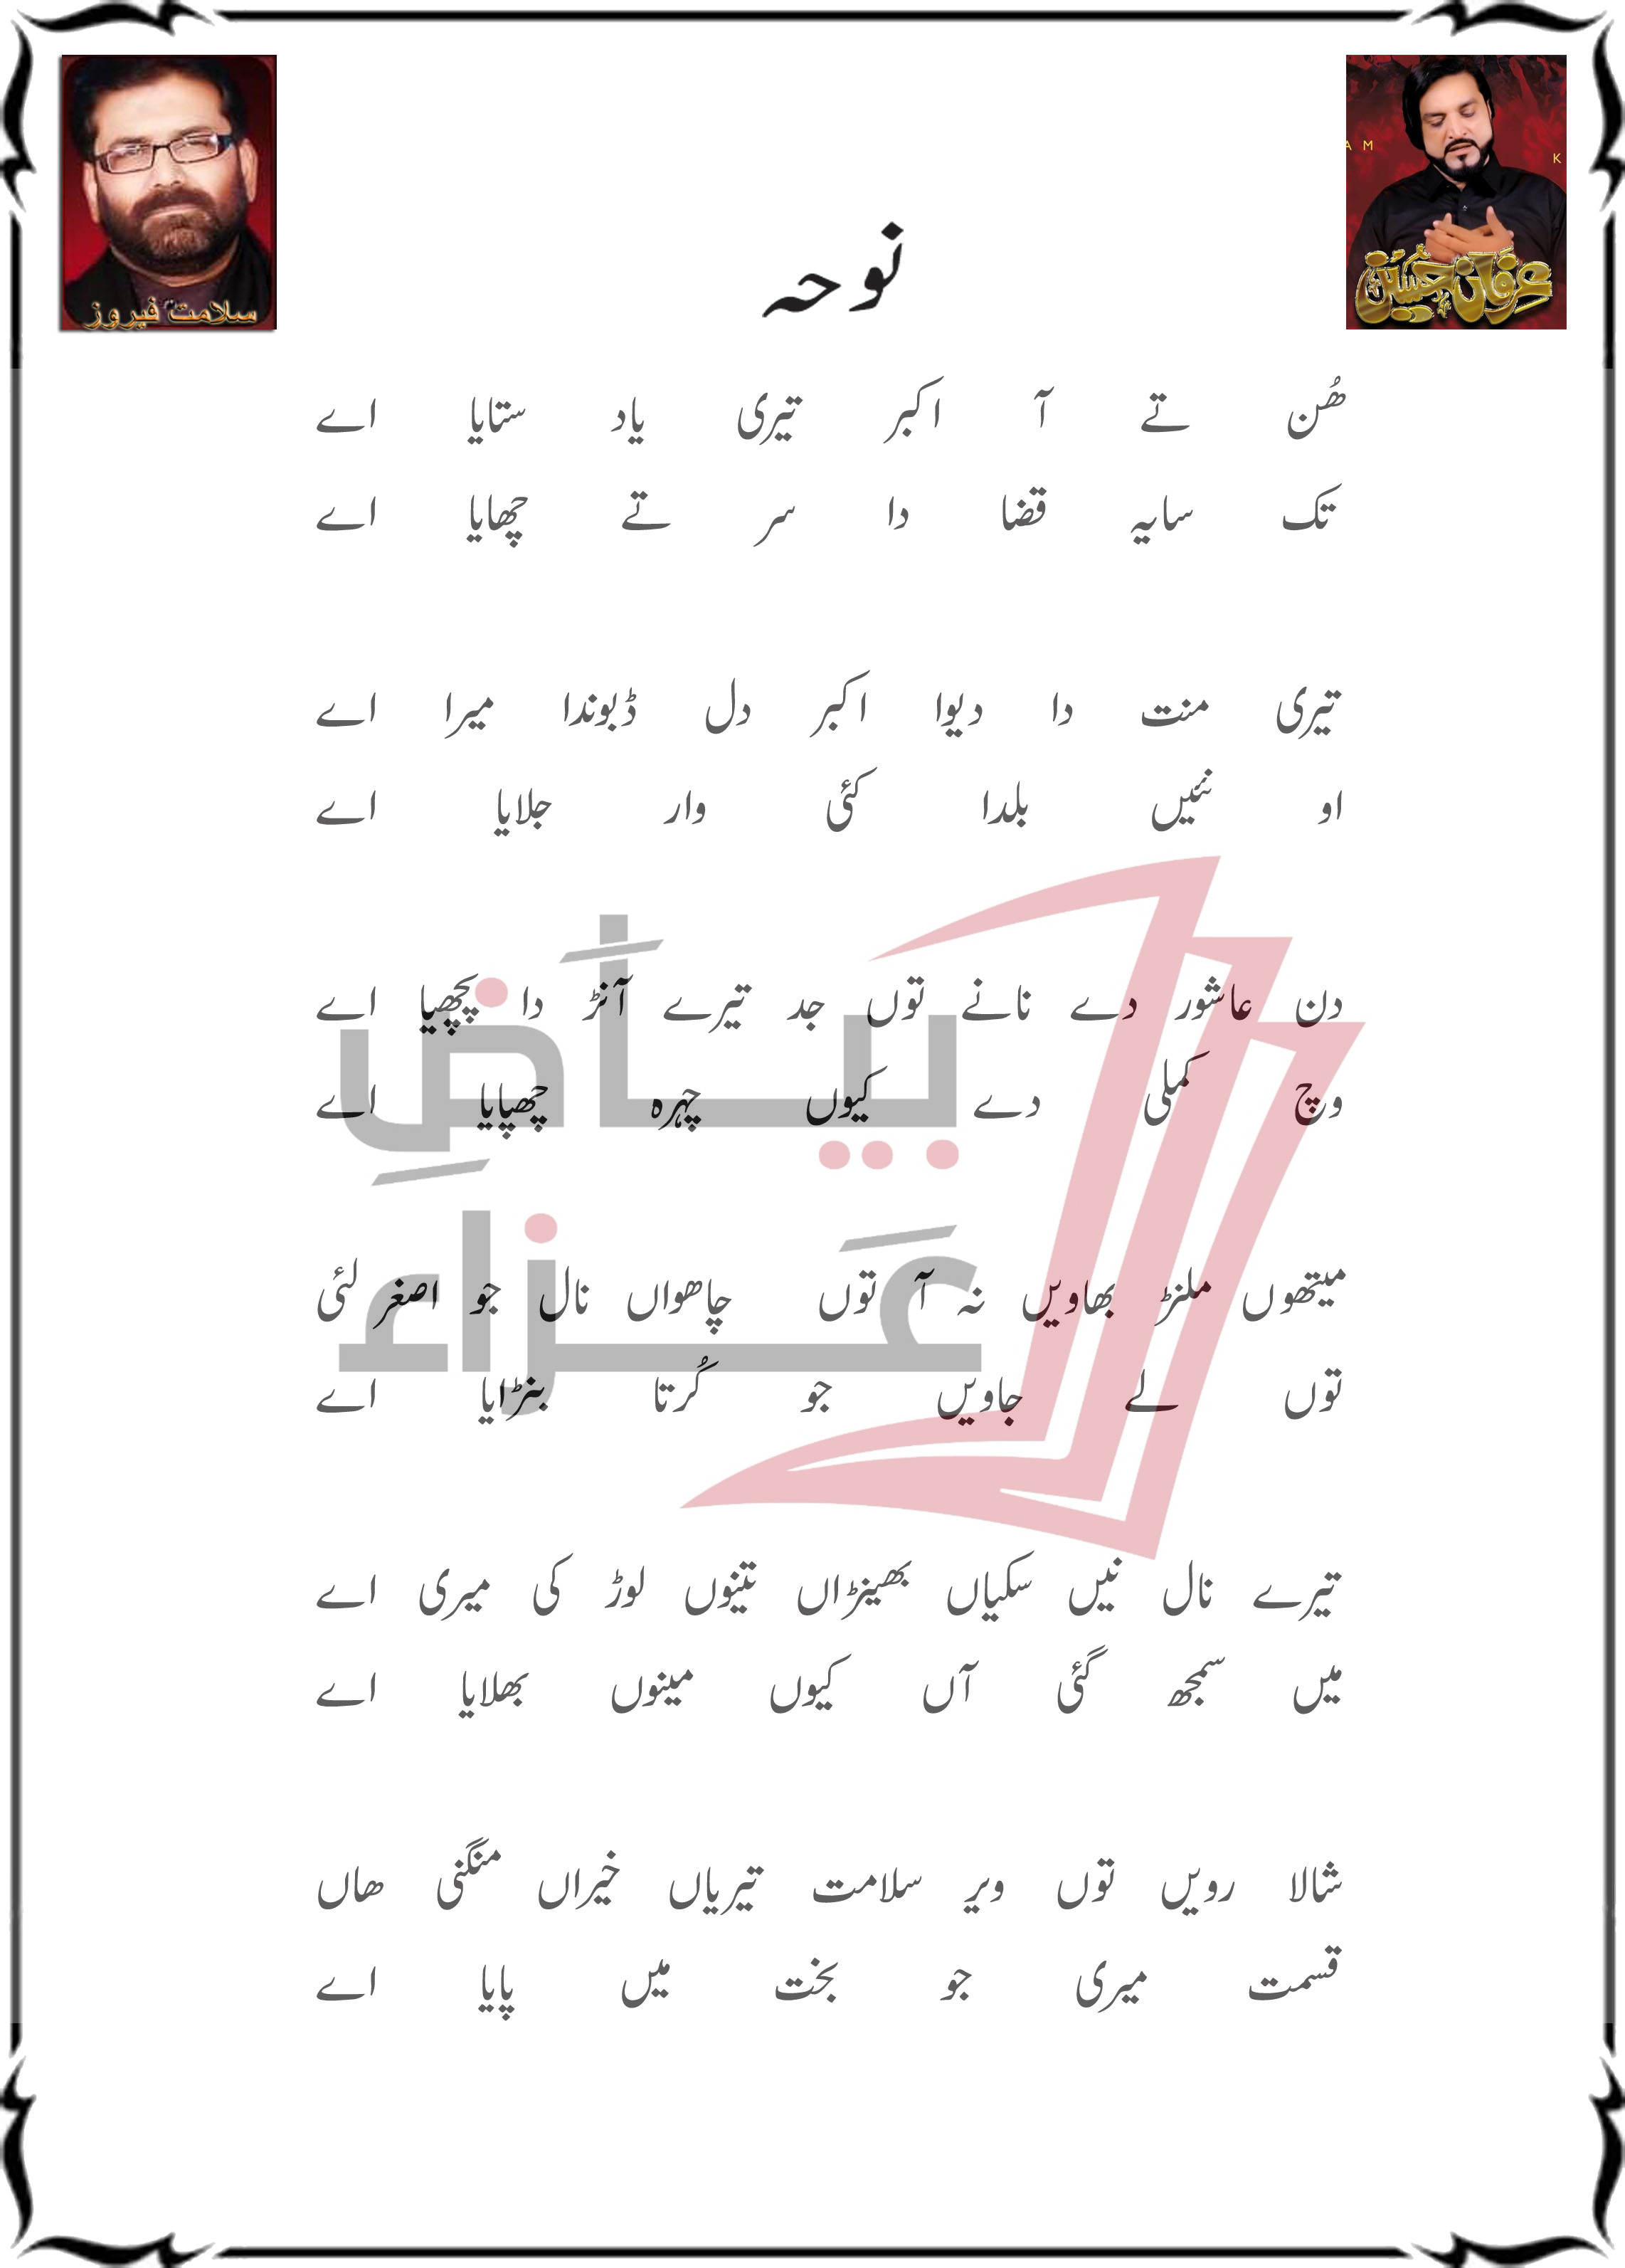 سلامت فیروز
عرفان حسین
A M
K
نوحہ
ھُن تے آ اکبر تیری یاد ستایا اے
تک سایہ قضا دا سر تے چھایا اے
تیری منت دا دیوا اکبر دل ڈبوندا میرا اے
او نئیں بلدا کئی وار جلایا اے
دن عاشور دے نانے توں جد تیرے آنڑ دا پچھیا اے
وچ کملی دے کیوں چہرہ چھپایا اے
میتھوں ملنڑ بھاویں نہ آ توں چاھواں نال جو اصغر لئی
توں لے جاویں جو کُرتا بنڑایا اے
تیرے نال نیں سکیاں بھینڑاں تینوں لوڑ کی میری اے
میں سمجھ گئی آں کیوں مینوں بھلایا اے
شالا رویں توں ویر سلامت تیریاں خیراں منگنی ھاں
قسمت میری جو بخت میں پایا اے
بیاضِ
عَزاء